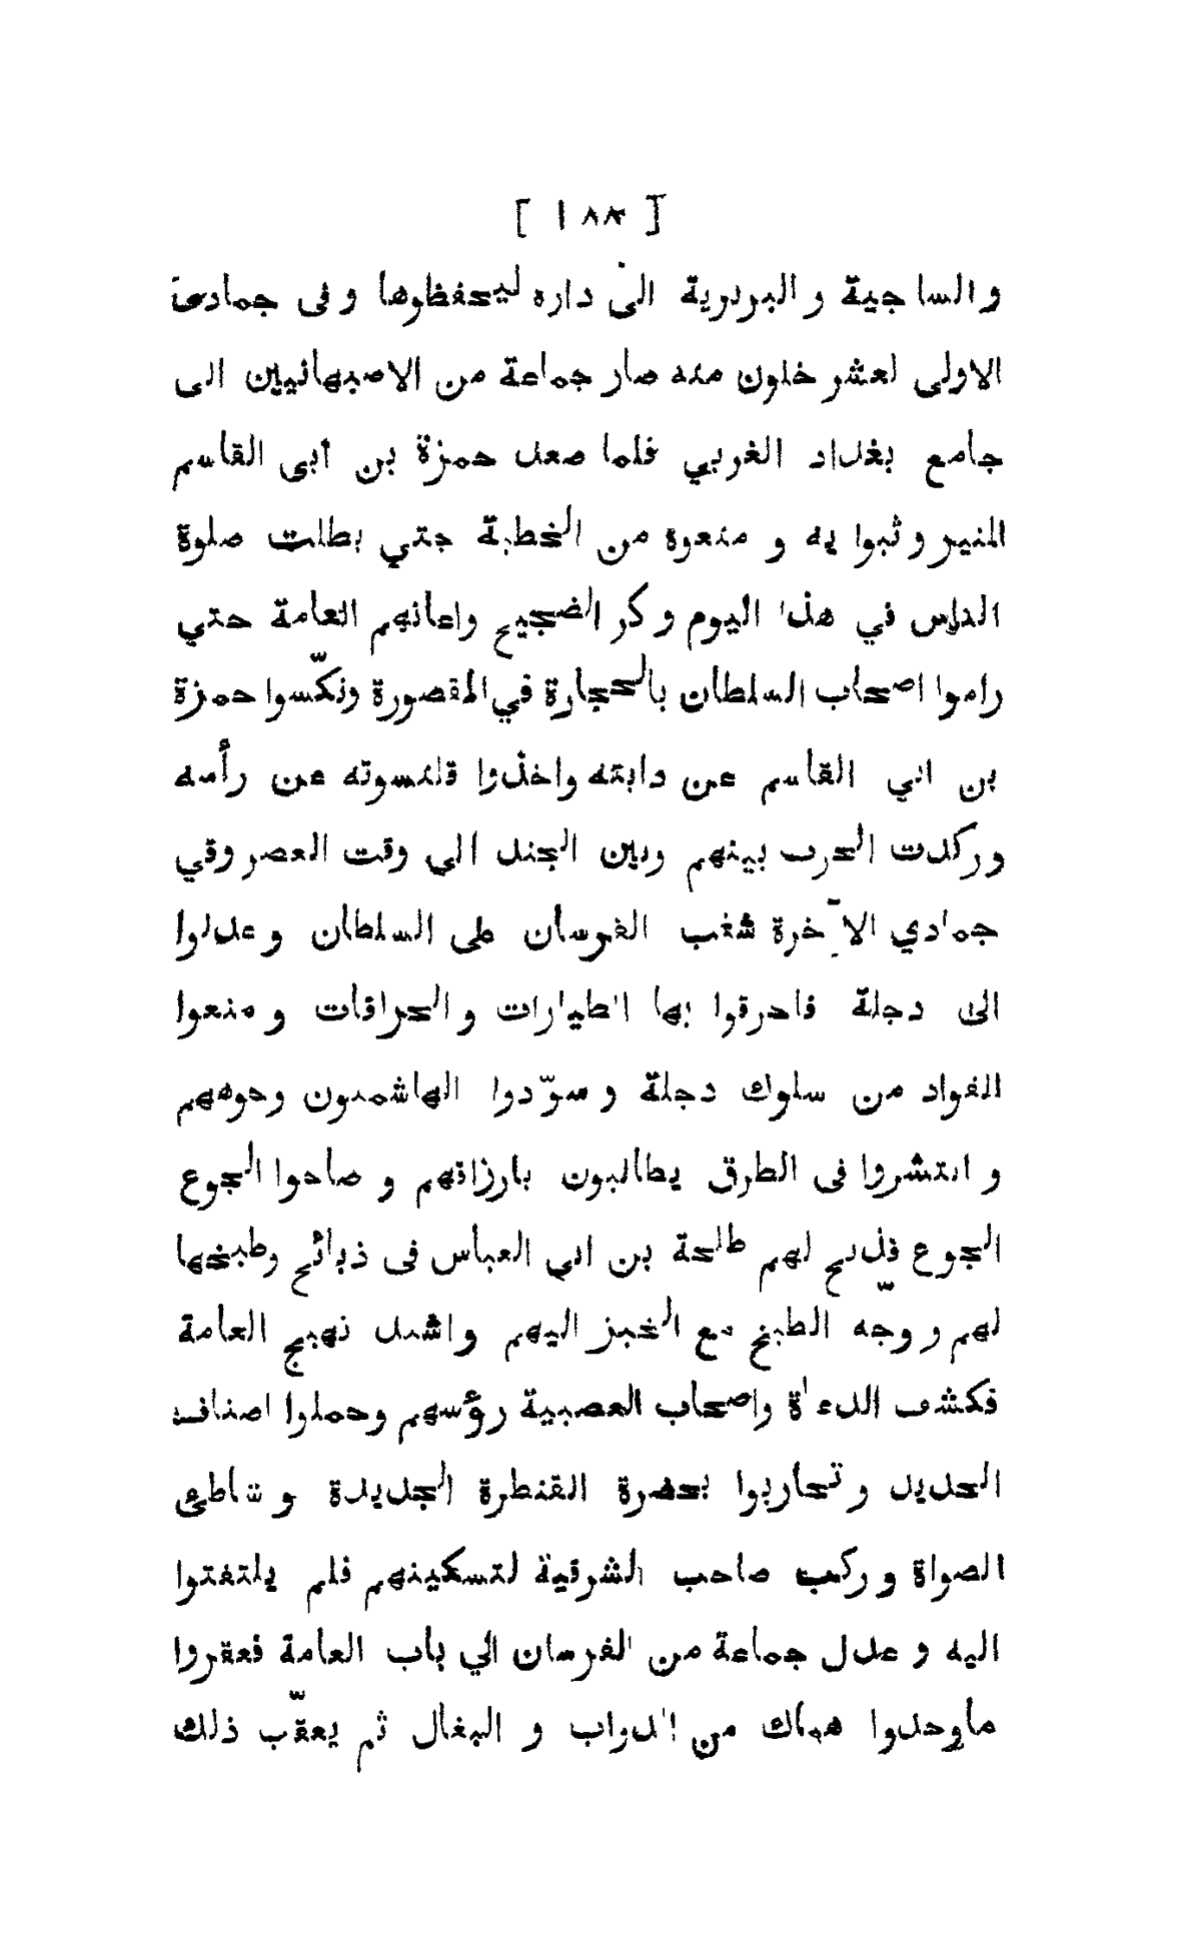 [ ١٨٤ ]
والساجية والبربرية الى داره ليحفظوها وفى جمادى
الاولى لعشر خلون منه صار جماعة من الاصبهانيين الى
جامع بغداد الغربي فلما صعد حمزة بن أبى القاسم
المنبر وثبوا به و منعوه من الخطبة حتي بطلت صلوة
الناس في هذا اليوم وكر الضجيج واعانهم العامة حتي
راموا اصحاب السلطان بالحجارة في المقصورة ونكّسوا حمزة
بن ابي القاسم عن دابته واخذوا قلنسوته عن رأسه
وركدت الحرب بينهم وبين الجند الي وقت العصر وفي
جمادي الآخرة شغب الفرسان على السلطان وعدلوا
الى دجلة فاحرقوا بها الطيارات والحراقات و منعوا
القواد من سلوك دجلة و سوّدوا الهاشميون وجوههم
و انتشروا فى الطرق يطالبون بارزاقهم و صاحوا الجوع
الجوع فذبح لهم طلحة بن ابي العباس فى ذبائح وطبخها
لهم ووجّه الطبخ مع الخبز اليهم واشتد تهيج العامة
فكشف الدعاة واصحاب العصبية رؤسهم وحملوا اصناف
الحديد وتحاربوا بحضرة القنطرة الجديدة وشاطئ
الصراة وركب صاحب الشرقية لتسكينهم فلم يلتفتوا
اليه وعدل جماعة من الفرسان الي باب العامة فعقروا
ماوجدوا هناك من الدواب و البغال ثم يعقّب ذلك